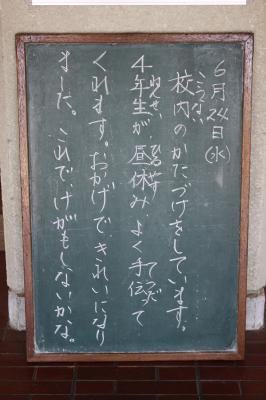 6月24日(水)
校内のかたづけをしています。
4年生が、昼休み、よく手伝って
くれます。おかげで、きれいになり
ました。これで、けがもしないかな。